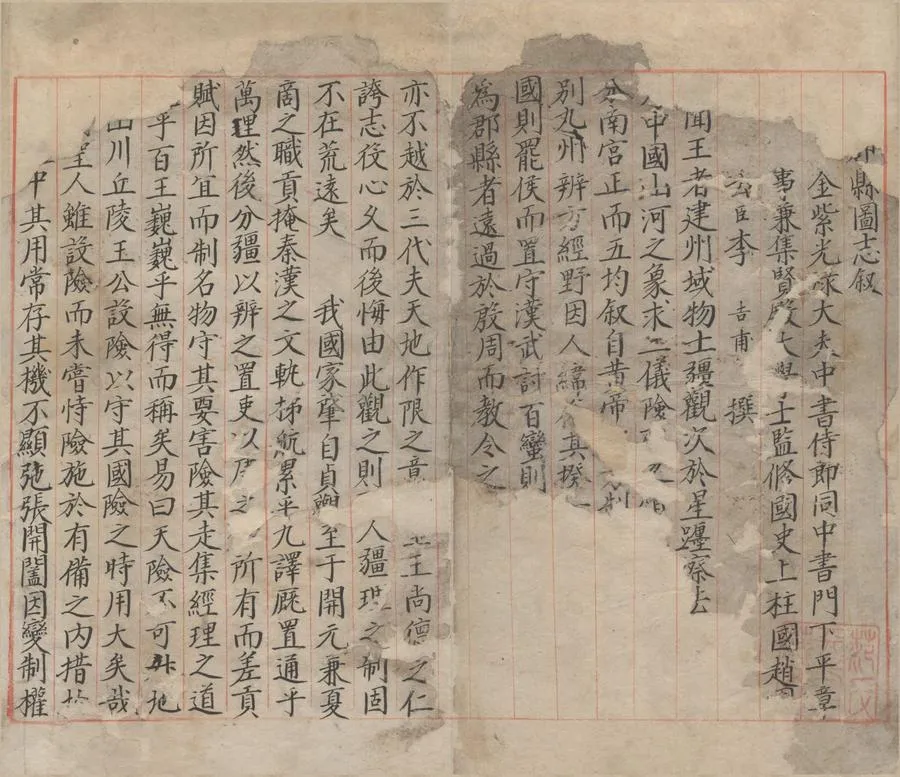 縣圖志叙
金紫光祿大夫中書侍郎同中書門下平章
事兼集賢殿大學士監修國史上柱國趙
公臣李 吉甫 撰
聞王者建州域物土疆觀次於星躔察
中國山河之象求二儀險
分南宮正而五均叙自昔帝
別九州辨方經野因人緯俗其揆一
國則罷侯而置守漢武討百蠻則
為郡縣者遠過於殷周而教令之
亦不越於三代夫天地作限之意 王尚德之仁
誇志役心久而後悔由此觀之則 人疆理之制固
不在荒遠矣 我國家肇自貞觀至于開元兼夏
商之職貢掩秦漢之文軌梯航累乎九譯厩置通乎
萬里然後分疆以辨之置吏以 之 所有而差貢
賦因所宜而制名物守其要害險其走集經理之道
乎百王巍巍乎無得而稱矣易曰天險不可升地
山川丘陵王公設險以守其國險之時用大矣哉
聖人雖設險而未嘗恃險施於有備之內措
中其用常存其機不顯弛張開闔因變制權